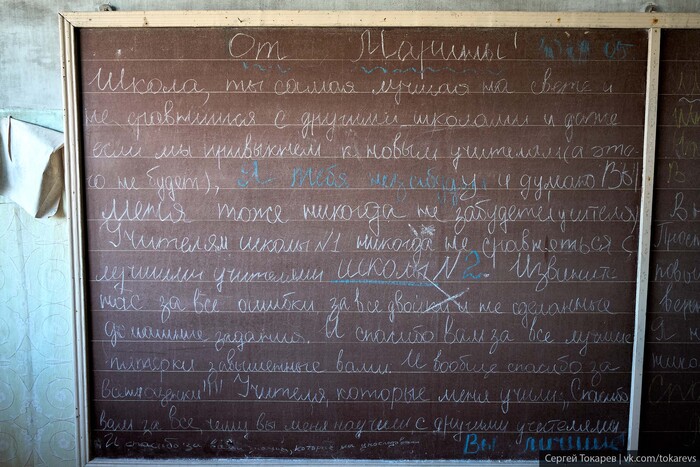 От Марины!
Школа, ты самая лучшая на свете и
не сравнишся с другими школами и даже
если мы привыкнем к новым учителям (а эта-
го не будет), Я тебя незабуду и думаю Вы
меня тоже никогда не забудете (учителя)
Учителям школы №1 никогда не сравнеться с
лучшими учителями школы №2. Извини
нас за все ошибки за все двойки и не сделанные
домашние задания. И спосибо вам за все лучшие
пятерки завышенные вами. И вообще спасибо за
все оценки!!! Учителя, которые меня учили, Спасибо
вам за все чему вы меня научили с другими учителями
И спасибо за знания, которые
Вы лучшие!
Сергей Токарев | vk.com/tokarevs